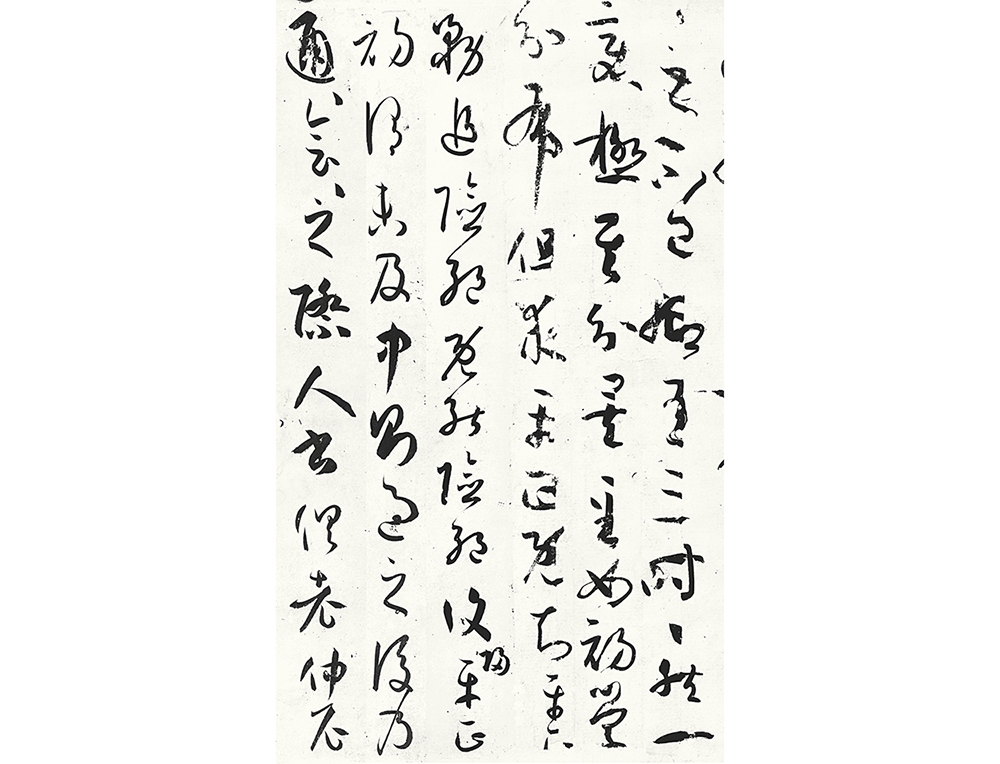 〻之不已抑有三時〻然一
變極其分矣至如初學
分布但求平正既知平正
務追險絕既能險絕復歸平正
初謂未及中則過之後乃
通〻會〻之際人書俱老仲尼